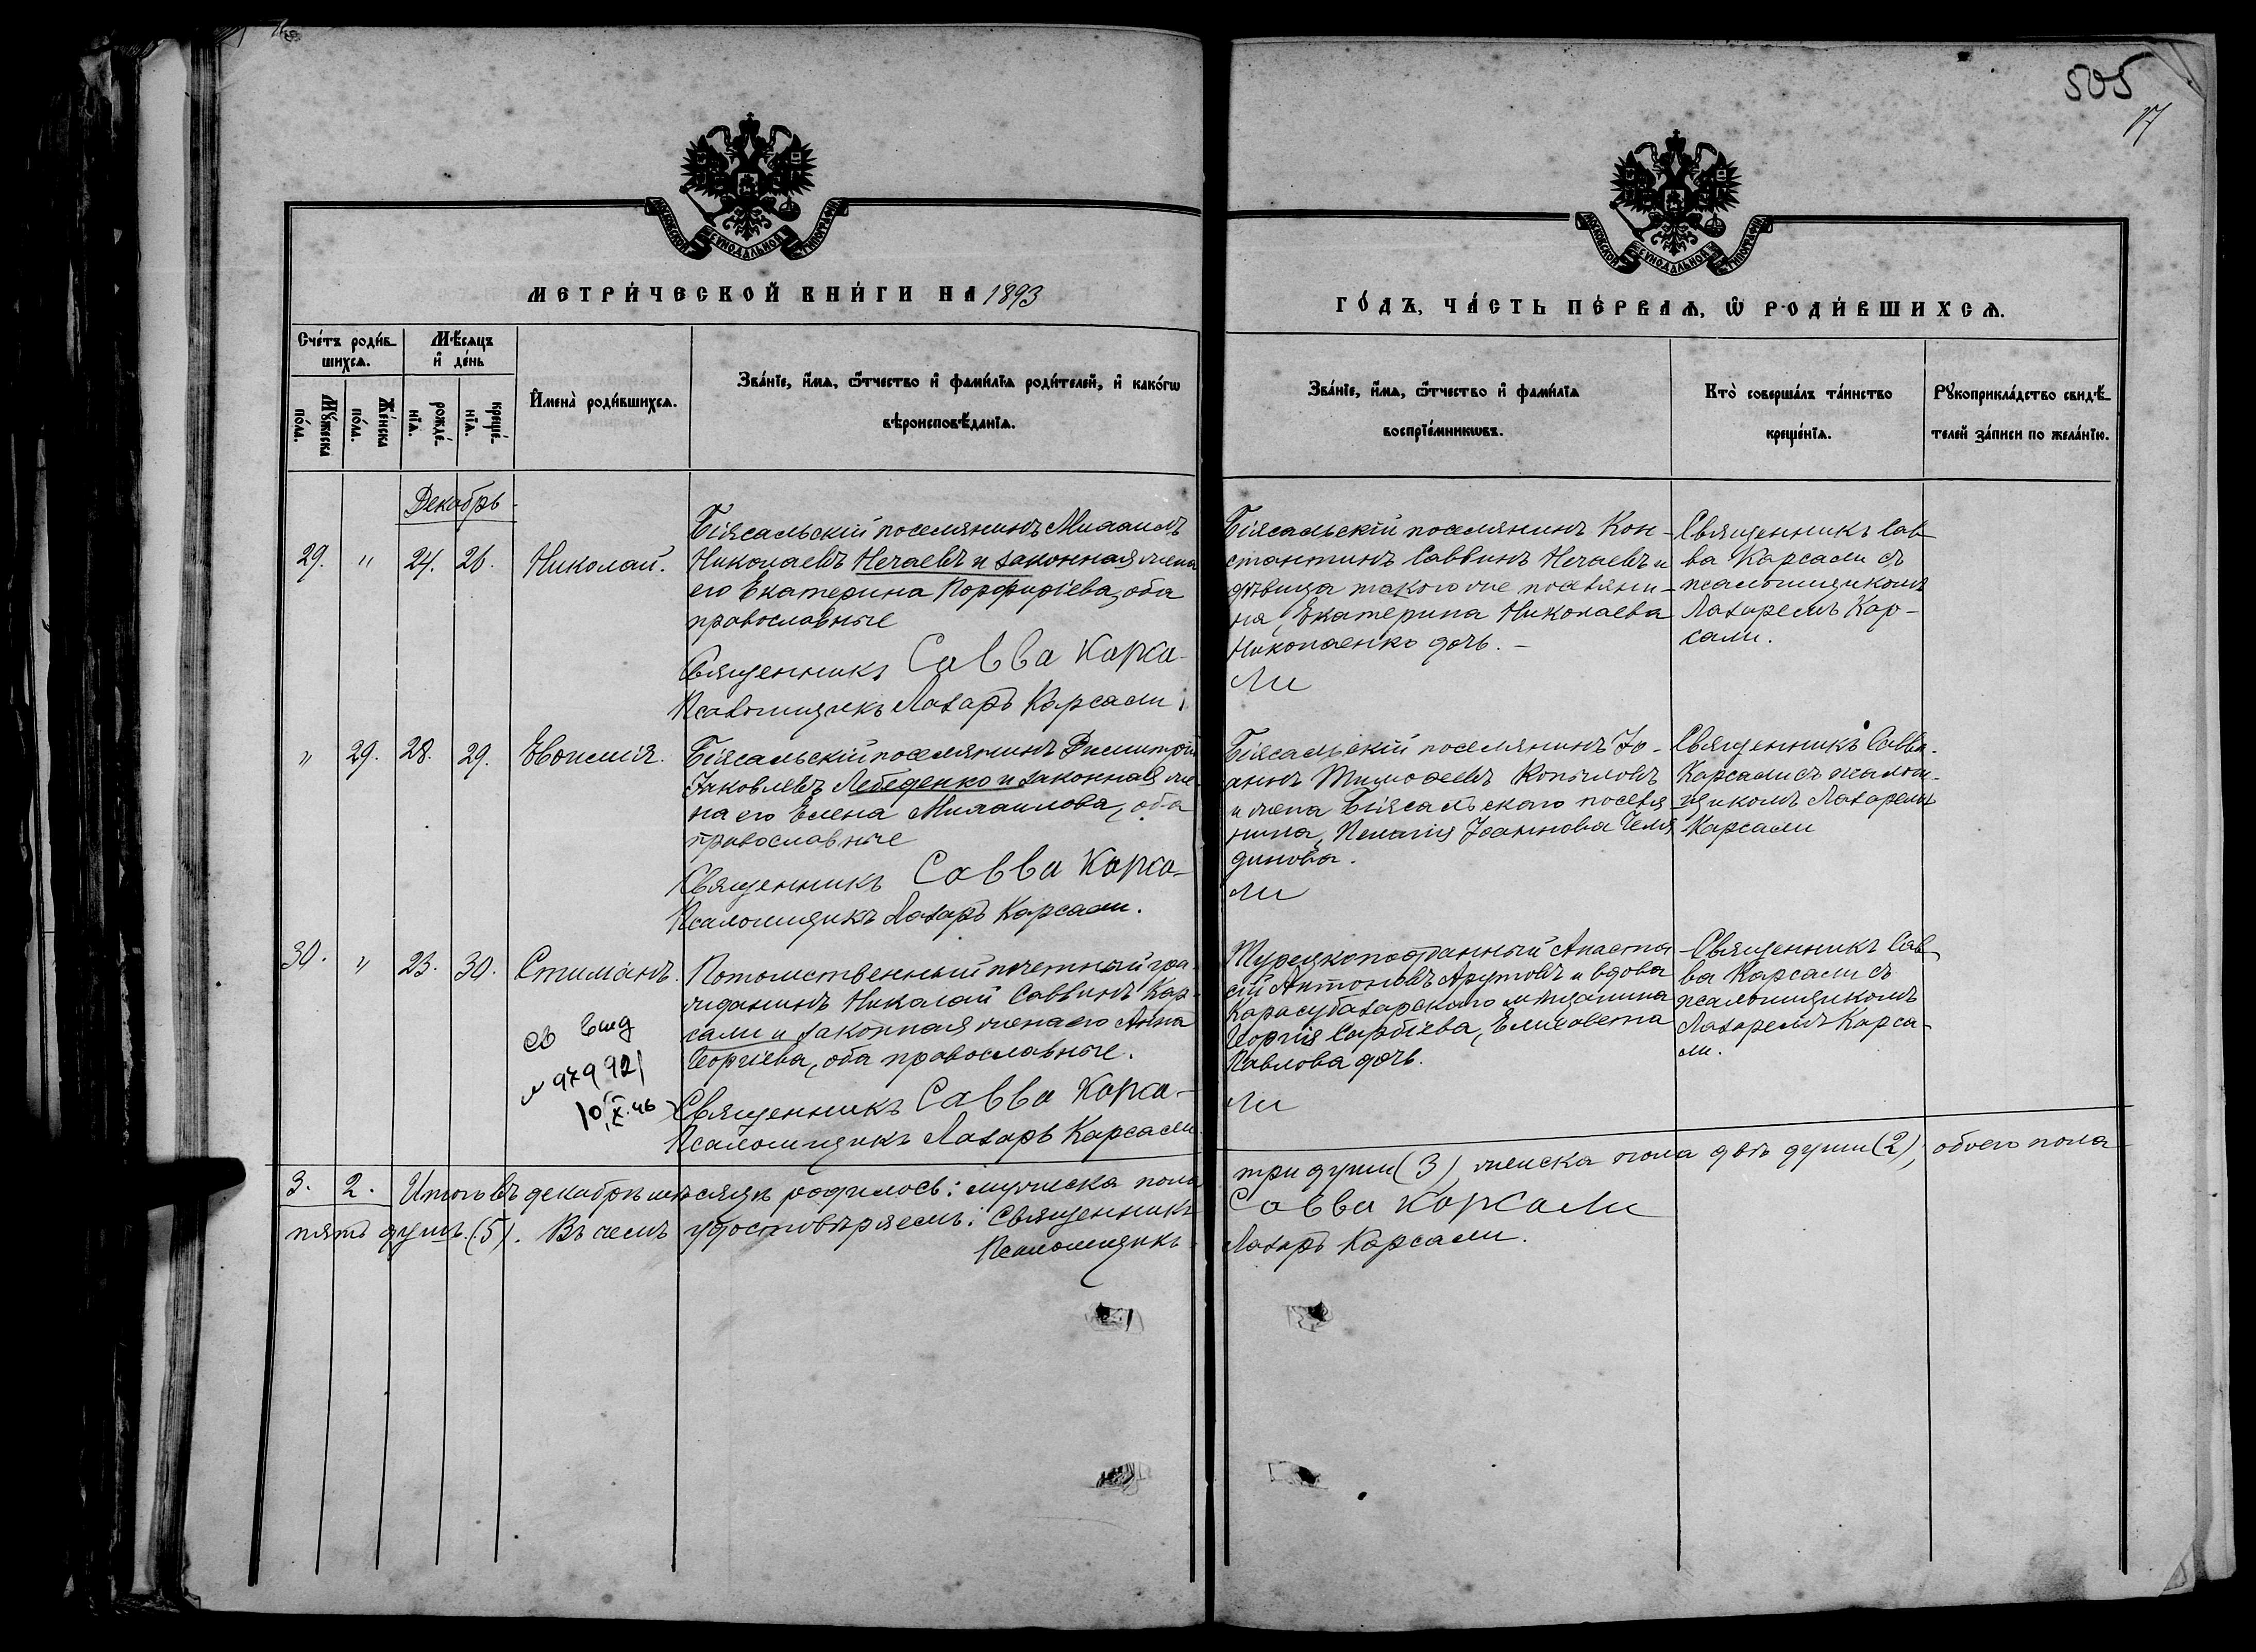 505
17
МОСКОВСКОЙ СѴНОДАЛЬНОЙ ТИПОГРАФІИ
МОСКОВСКОЙ СѴНОДАЛЬНОЙ ТИПОГРАФІИ
МЕТРИ́ЧЕСКОЙ КНИ́ГИ НА 1893
ГО́ДЪ, ЧА́СТЬ ПЕ́РВАѦ, Ѿ РОДИ́ВШИХСѦ.
Сче́тъ роди́в-
шихсѧ.
Мѣ́сѧцъ
и҆ де́нь
Мꙋ́жеска
по́ла.
Же́нска
по́ла.
рожде́-
нїѧ.
креще́-
нїѧ.
И҆мена̀ роди́вшихсѧ.
Зва́нїе, и҆́мѧ, ѻ҆́тчество и҆ фами́лїѧ роди́телей, и҆ како́гѡ
вѣроисповѣ́данїѧ.
Зва́нїе, и҆́мѧ, ѻ҆́тчество и҆ фами́лїѧ
воспрїе́мникѡвъ.
Кто̀ соверша́лъ та́инство
креще́нїѧ.
Рꙋкоприкла́дство свидѣ́-
телей за́писи по жела́нїю.
Декабрь.
29. " 24. 26. Николай.
Біясальскій поселянинъ Михаилъ
Николаевъ Нечаевъ и законная жена
его Екатерина Порфиріева, оба
православные
Священникъ Савва Карса-
Псаломщикъ Лазарь Карсали;
Біясальскій поселянинъ Кон-
стантинъ Саввинъ Нечаевъ и
дѣвица такого же поселяни-
на, Екатерина Николаева
Николаенко дочь. -
ли
Священникъ Сав-
ва Карсали съ
псаломщикомъ
Лазаремъ Кар-
сали.
" 29. 28. 29. Евфимія.
Біясальскій поселянинъ Димитрій
Іаковлевъ Лебеденко и законная же-
на его Елена Михаилова, оба
православные
Священникъ Савва Карса-
Псаломщикъ Лазарь Карсали.
Біясальскій поселянинъ Іо-
аннъ Тимоѳеевъ Копыловъ
и жена Біясальскаго поселя-
нина, Пелагія Іоаннова Челя
динова.
ли
Священникъ Савва
Карсали съ псалом-
щикомъ Лазаремъ
Карсали
30. " 23. 30. Стиліанъ.
Потомственный почетный гра-
жданинъ Николай Саввинъ Кар-
сали и законная жена его Анна
Георгіева, оба православные.
Священникъ Савва Карса-
Псаломщикъ Лазарь Карсали
№ 979921
10/X.46
Турецкоподданный Анаста
сій Антоновъ Арутовъ и вдова
Карасубазарскаго мѣщанина
Георгія Сарбіева, Елисавета
Павлова дочь.
ли
Священникъ Сав-
ва Карсали съ
псаломщикомъ
Лазаремъ Карса-
ли.
3. 2. Итого въ декабрѣ мѣсяцѣ родилось: мужеска пола
три души (3), женска пола двѣ души (2), обоего пола
пять душъ (5). Въ чемъ удостовѣряемъ: Священникъ
Савва Карсали
Псаломщикъ
Лазарь Карсали.